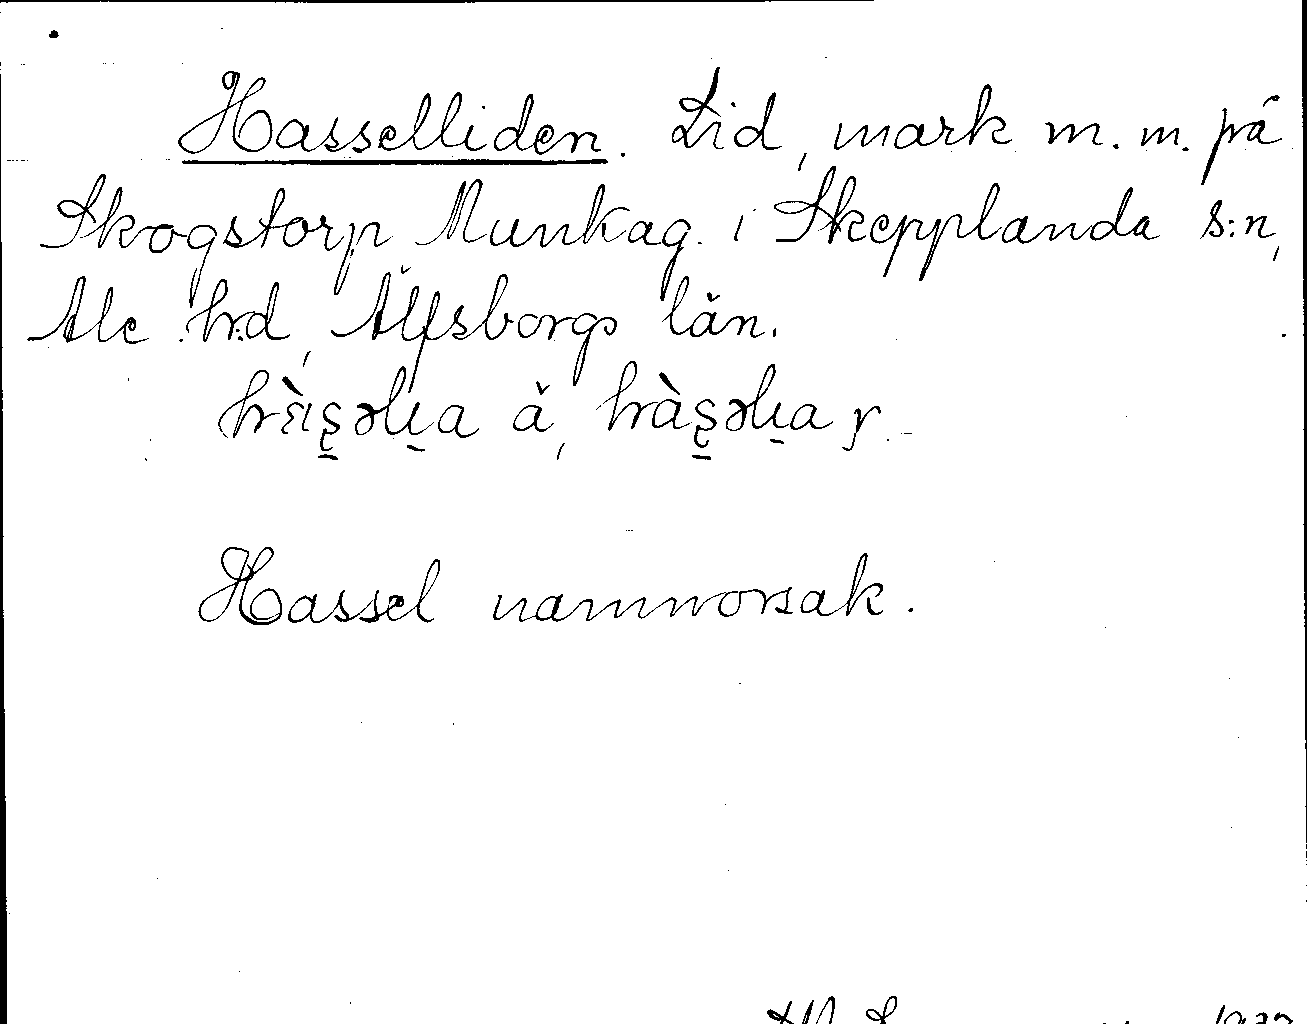 Hasselliden. Lid, mark m. m. på
Skogstorp Munkag. i Skepplanda s:n,
Ale hd, Älfsborgs län.
Hassel namnorsak.